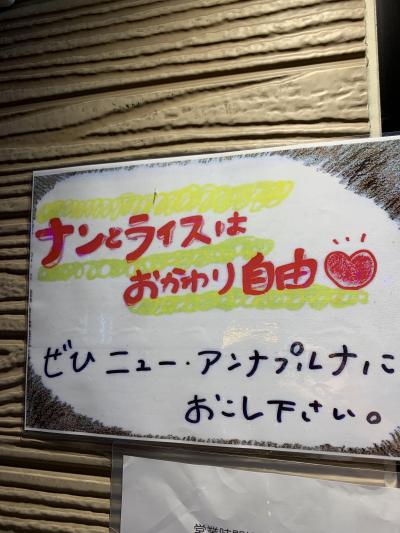 ナンとライスは
おかわり自由
ぜひ ニュー・アンナプルナに
おこし下さい。
営業時間